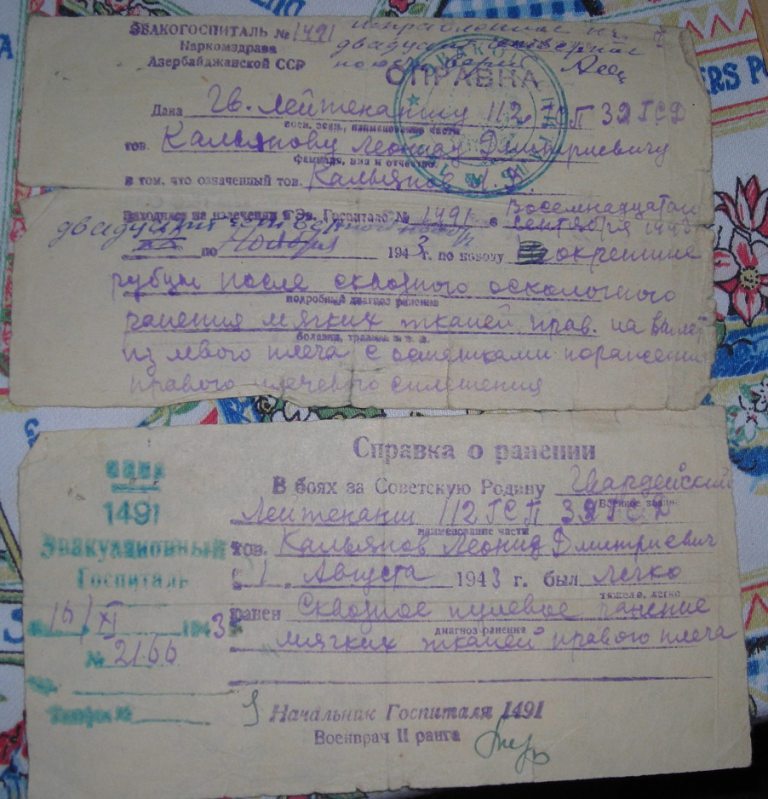 ЭВАКОГОСПИТАЛЬ № 1491
Наркомздрава
Азербайджанской ССР
исправленное на
двадцать четвертое
ноября верно
СПРАВКА
Дана Гв. Лейтенанту 112 ГСП 39 ГСД
воен. зван., наименование части
тов. Кальянову Леониду Дмитриевичу
фамилия, имя и отчество
в том, что означенный тов. Кальянов Л. Д.
находился на излечении в Эв. Госпитале № 1491 с Восемнадцатого
сентября 1943
двадцать четвертое
по Ноября 1943 г. по поводу окрепшие
рубцы после сквозного осколочного
подробный диагноз ранения
ранения мягких тканей прав.
болезни, травмы и т. д.
из левого плеча с
правого плечевого сплетения
СССР
1491
Эвакуационный
Госпиталь
16/XI 1943
№ 2166
гор.
Телефон №
Справка о ранении
В боях за Советскую Родину Гвардейский
Военное зван.
Лейтенант 112 ГСП 39 ГСД
наименование части
тов. Кальянов Леонид Дмитриевич
1 Августа 1943 г. был легко
тяжело, легко
ранен Сквозное пулевое ранение
диагноз ранения
мягких тканей правого плеча
Начальник Госпиталя 1491
Военврач II ранга
ERS PO